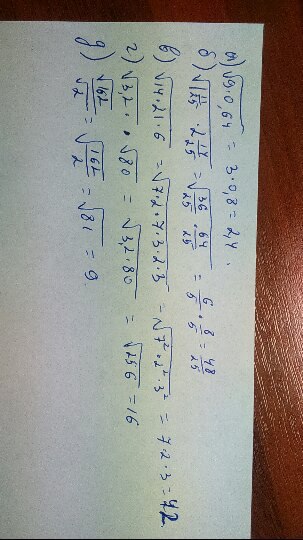 а) √9·0,64 = 3·0,8 = 2,4.
б) √1 11/25 · 2 14/25 = √36/25 · 64/25 = 6/5 · 8/5 = 48/25
в) √14·21·6 = √7·2·7·3·2·3 = √7²·2²·3² = 7·2·3 = 42
г) √3,2 · √80 = √3,2·80 = √256 = 16
д) √162/√2 = √162/2 = √81 = 9